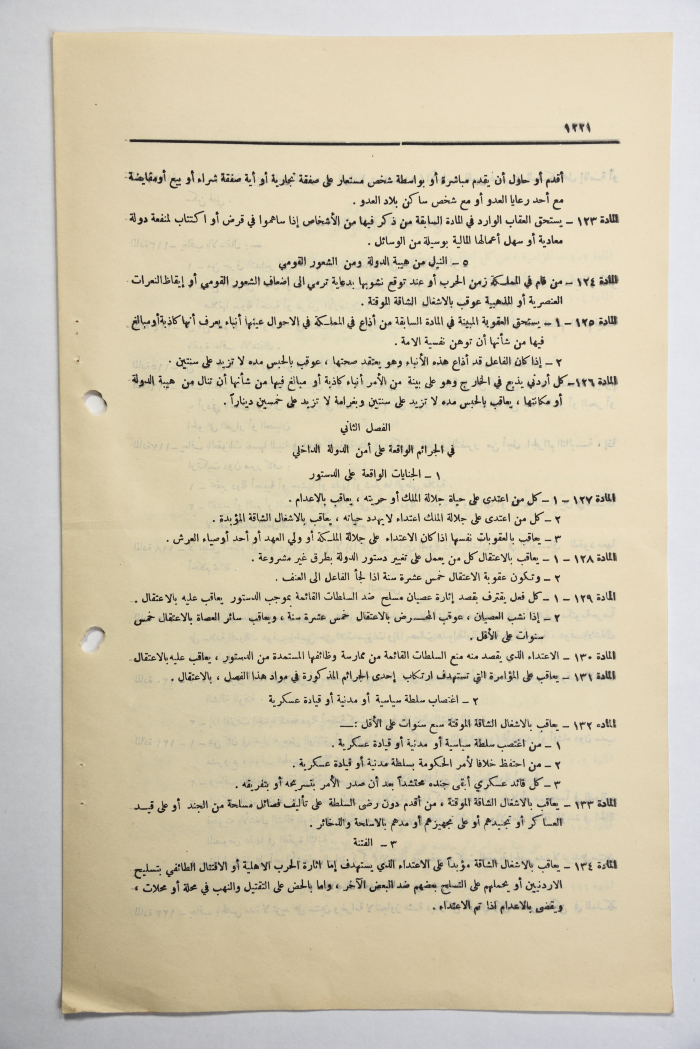 ١٢٢١
أقدم أو حاول أن يقدم مباشرة أو بواسطة شخص مستعار على صفقة تجارية أو أية صفقة شراء أو بيع أو مقايضة
مع أحد رعايا العدو أو مع شخص ساكن بلاد العدو .
المادة ١٢٣ – يستحق العقاب الوارد في المادة السابقة من ذكر فيها من الأشخاص إذا ساهموا في قرض أو اكتتاب لمنفعة دولة
معادية أو سهل أعمالها المالية بوسيلة من الوسائل .
٥ – النيل من هيبة الدولة ومن الشعور القومي
المادة ١٢٤ – من قام في المملكة زمن الحرب أو عند توقع نشوبها بدعاية ترمي الى اضعاف الشعور القومي أو إيقاظ النعرات
العنصرية أو المذهبية عوقب بالاشغال الشاقة الموقتة .
المادة ١٢٥ – ١ – يستحق العقوبة المبينة في المادة السابقة من أذاع في المملكة في الاحوال عينها أنباء يعرف أنها كاذبة أو مبالغ
فيها من شأنها أن توهن نفسية الامة .
٢ – إذا كان الفاعل قد أذاع هذه الأنباء وهو يعتقد صحتها ، عوقب بالحبس مده لا تزيد على سنتين .
المادة ١٢٦ – كل أردني يذيع في الخارج وهو على بينة من الأمر أنباء كاذبة أو مبالغ فيها من شأنها أن تنال من هيبة الدولة
أو مكانتها ، يعاقب بالحبس مده لا تزيد على سنتين وبغرامة لا تزيد على خمسين ديناراً .
الفصل الثاني
في الجرائم الواقعة على أمن الدولة الداخلي
١ – الجنايات الواقعة على الدستور
المادة ١٢٧ – ١ – كل من اعتدى على حياة جلالة الملك أو حريته ، يعاقب بالاعدام .
٢ – كل من اعتدى على جلالة الملك اعتداء لا يهدد حياته ، يعاقب بالاشغال الشاقة المؤبدة .
٣ – يعاقب بالعقوبات نفسها اذا كان الاعتداء على جلالة الملكة أو ولي العهد أو أحد أوصياء العرش .
المادة ١٢٨ – ١ – يعاقب بالاعتقال كل من يعمل على تغيير دستور الدولة بطرق غير مشروعة .
٢ – وتكون عقوبة الاعتقال خمس عشرة سنة اذا لجأ الفاعل الى العنف .
المادة ١٢٩ – ١ – كل فعل يقترف بقصد إثارة عصيان مسلح ضد السلطات القائمة بموجب الدستور يعاقب عليه بالاعتقال .
٢ – إذا نشب العصيان ، عوقب المحرض بالاعتقال خمس عشرة سنة ، ويعاقب سائر العصاة بالاعتقال خمس
سنوات على الأقل .
المادة ١٣٠ – الاعتداء الذي يقصد منه منع السلطات القائمة من ممارسة وظائفها المستمدة من الدستور ، يعاقب عليه بالاعتقال
المادة ١٣١ – يعاقب على المؤامرة التي تستهدف ارتكاب إحدى الجرائم المذكورة في مواد هذا الفصل ، بالاعتقال .
٢ – اغتصاب سلطة سياسية أو مدنية أو قيادة عسكرية
الماده ١٣٢ – يعاقب بالاشغال الشاقة الموقتة سبع سنوات على الأقل :—
١ – من اغتصب سلطة سياسية أو مدنية أو قيادة عسكرية .
٢ – من احتفظ خلافا لأمر الحكومة بسلطة مدنية أو قيادة عسكرية .
٣ – كل قائد عسكري أبقى جنده محتشداً بعد أن صدر الأمر بتسريحه أو بتفريقه .
المادة ١٣٣ – يعاقب بالاشغال الشاقة الموقتة ، من أقدم دون رضى السلطة على تأليف فصائل مسلحة من الجند أو على قيد
العساكر أو تجنيدهم أو على تجهيزهم أو مدهم بالاسلحة والذخائر .
٣ – الفتنة
المادة ١٣٤ – يعاقب بالاشغال الشاقة مؤبداً على الاعتداء الذي يستهدف إما اثارة الحرب الاهلية أو الاقتتال الطائفي بتسليح
الاردنيين أو بحملهم على التسليح بعضهم ضد البعض الآخر ، واما بالحض على التقتيل والنهب في محلة أو محلات ،
ويقضى بالاعدام اذا تم الاعتداء .